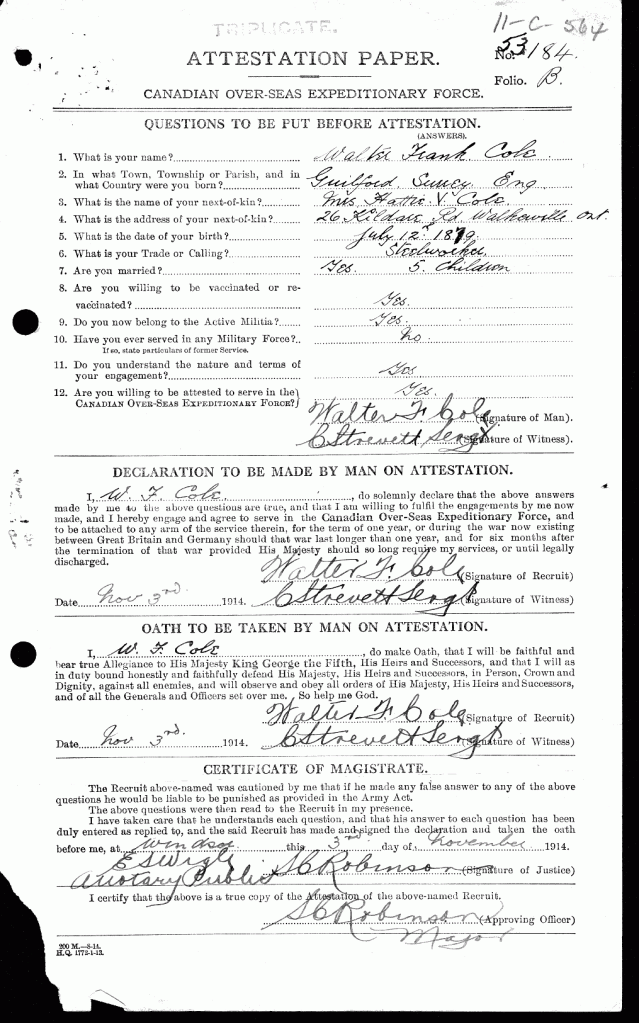 TRIPLICATE.
11-C-564
ATTESTATION PAPER.
No. 53184.
Folio. B.
CANADIAN OVER-SEAS EXPEDITIONARY FORCE.
QUESTIONS TO BE PUT BEFORE ATTESTATION.
(ANSWERS).
1. What is your name? Walter Frank Cole
2. In what Town, Township or Parish, and in
what Country were you born? Guilford Surrey Eng
3. What is the name of your next-of-kin? Mrs Hattie V Cole
4. What is the address of your next-of-kin? 26 Kildare Rd Walkerville Ont.
5. What is the date of your birth? July 12th 1879.
6. What is your Trade or Calling? Steelworker
7. Are you married? Yes. 5. Children
8. Are you willing to be vaccinated or re-
vaccinated? Yes.
9. Do you now belong to the Active Militia? Yes.
10. Have you ever served in any Military Force? No
If so, state particulars of former Service.
11. Do you understand the nature and terms of
your engagement? Yes
12. Are you willing to be attested to serve in the
CANADIAN OVER-SEAS EXPEDITIONARY FORCE? Yes
Walter F. Cole (Signature of Man).
C Strevett Sergt (Signature of Witness).
DECLARATION TO BE MADE BY MAN ON ATTESTATION.
I, W. F. Cole, do solemnly declare that the above answers
made by me to the above questions are true, and that I am willing to fulfil the engagements by me now
made, and I hereby engage and agree to serve in the Canadian Over-Seas Expeditionary Force, and
to be attached to any arm of the service therein, for the term of one year, or during the war now existing
between Great Britain and Germany should that war last longer than one year, and for six months after
the termination of that war provided His Majesty should so long require my services, or until legally
discharged.
Walter F. Cole (Signature of Recruit)
Date Nov 3rd. 1914. C Strevett Sergt (Signature of Witness)
OATH TO BE TAKEN BY MAN ON ATTESTATION.
I, W. F. Cole, do make Oath, that I will be faithful and
bear true Allegiance to His Majesty King George the Fifth, His Heirs and Successors, and that I will as
in duty bound honestly and faithfully defend His Majesty, His Heirs and Successors, in Person, Crown and
Dignity, against all enemies, and will observe and obey all orders of His Majesty, His Heirs and Successors,
and of all the Generals and Officers set over me. So help me God.
Walter F. Cole (Signature of Recruit)
Date Nov 3rd. 1914. C Strevett Sergt (Signature of Witness)
CERTIFICATE OF MAGISTRATE.
The Recruit above-named was cautioned by me that if he made any false answer to any of the above
questions he would be liable to be punished as provided in the Army Act.
The above questions were then read to the Recruit in my presence.
I have taken care that he understands each question, and that his answer to each question has been
duly entered as replied to, and the said Recruit has made and signed the declaration and taken the oath
before me, at Windsor this 3rd day of November 1914.
E S Wigle S C Robinson (Signature of Justice)
A Notary Public
I certify that the above is a true copy of the Attestation of the above-named Recruit.
S C Robinson (Approving Officer)
Major
200 M.—8-14.
H.Q. 1772-1-13.